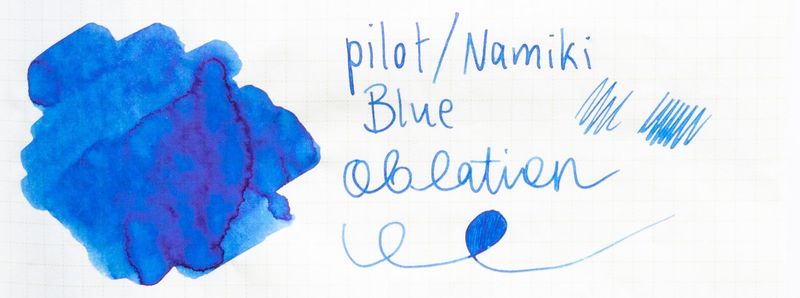 pilot/Namiki
Blue
Oblation